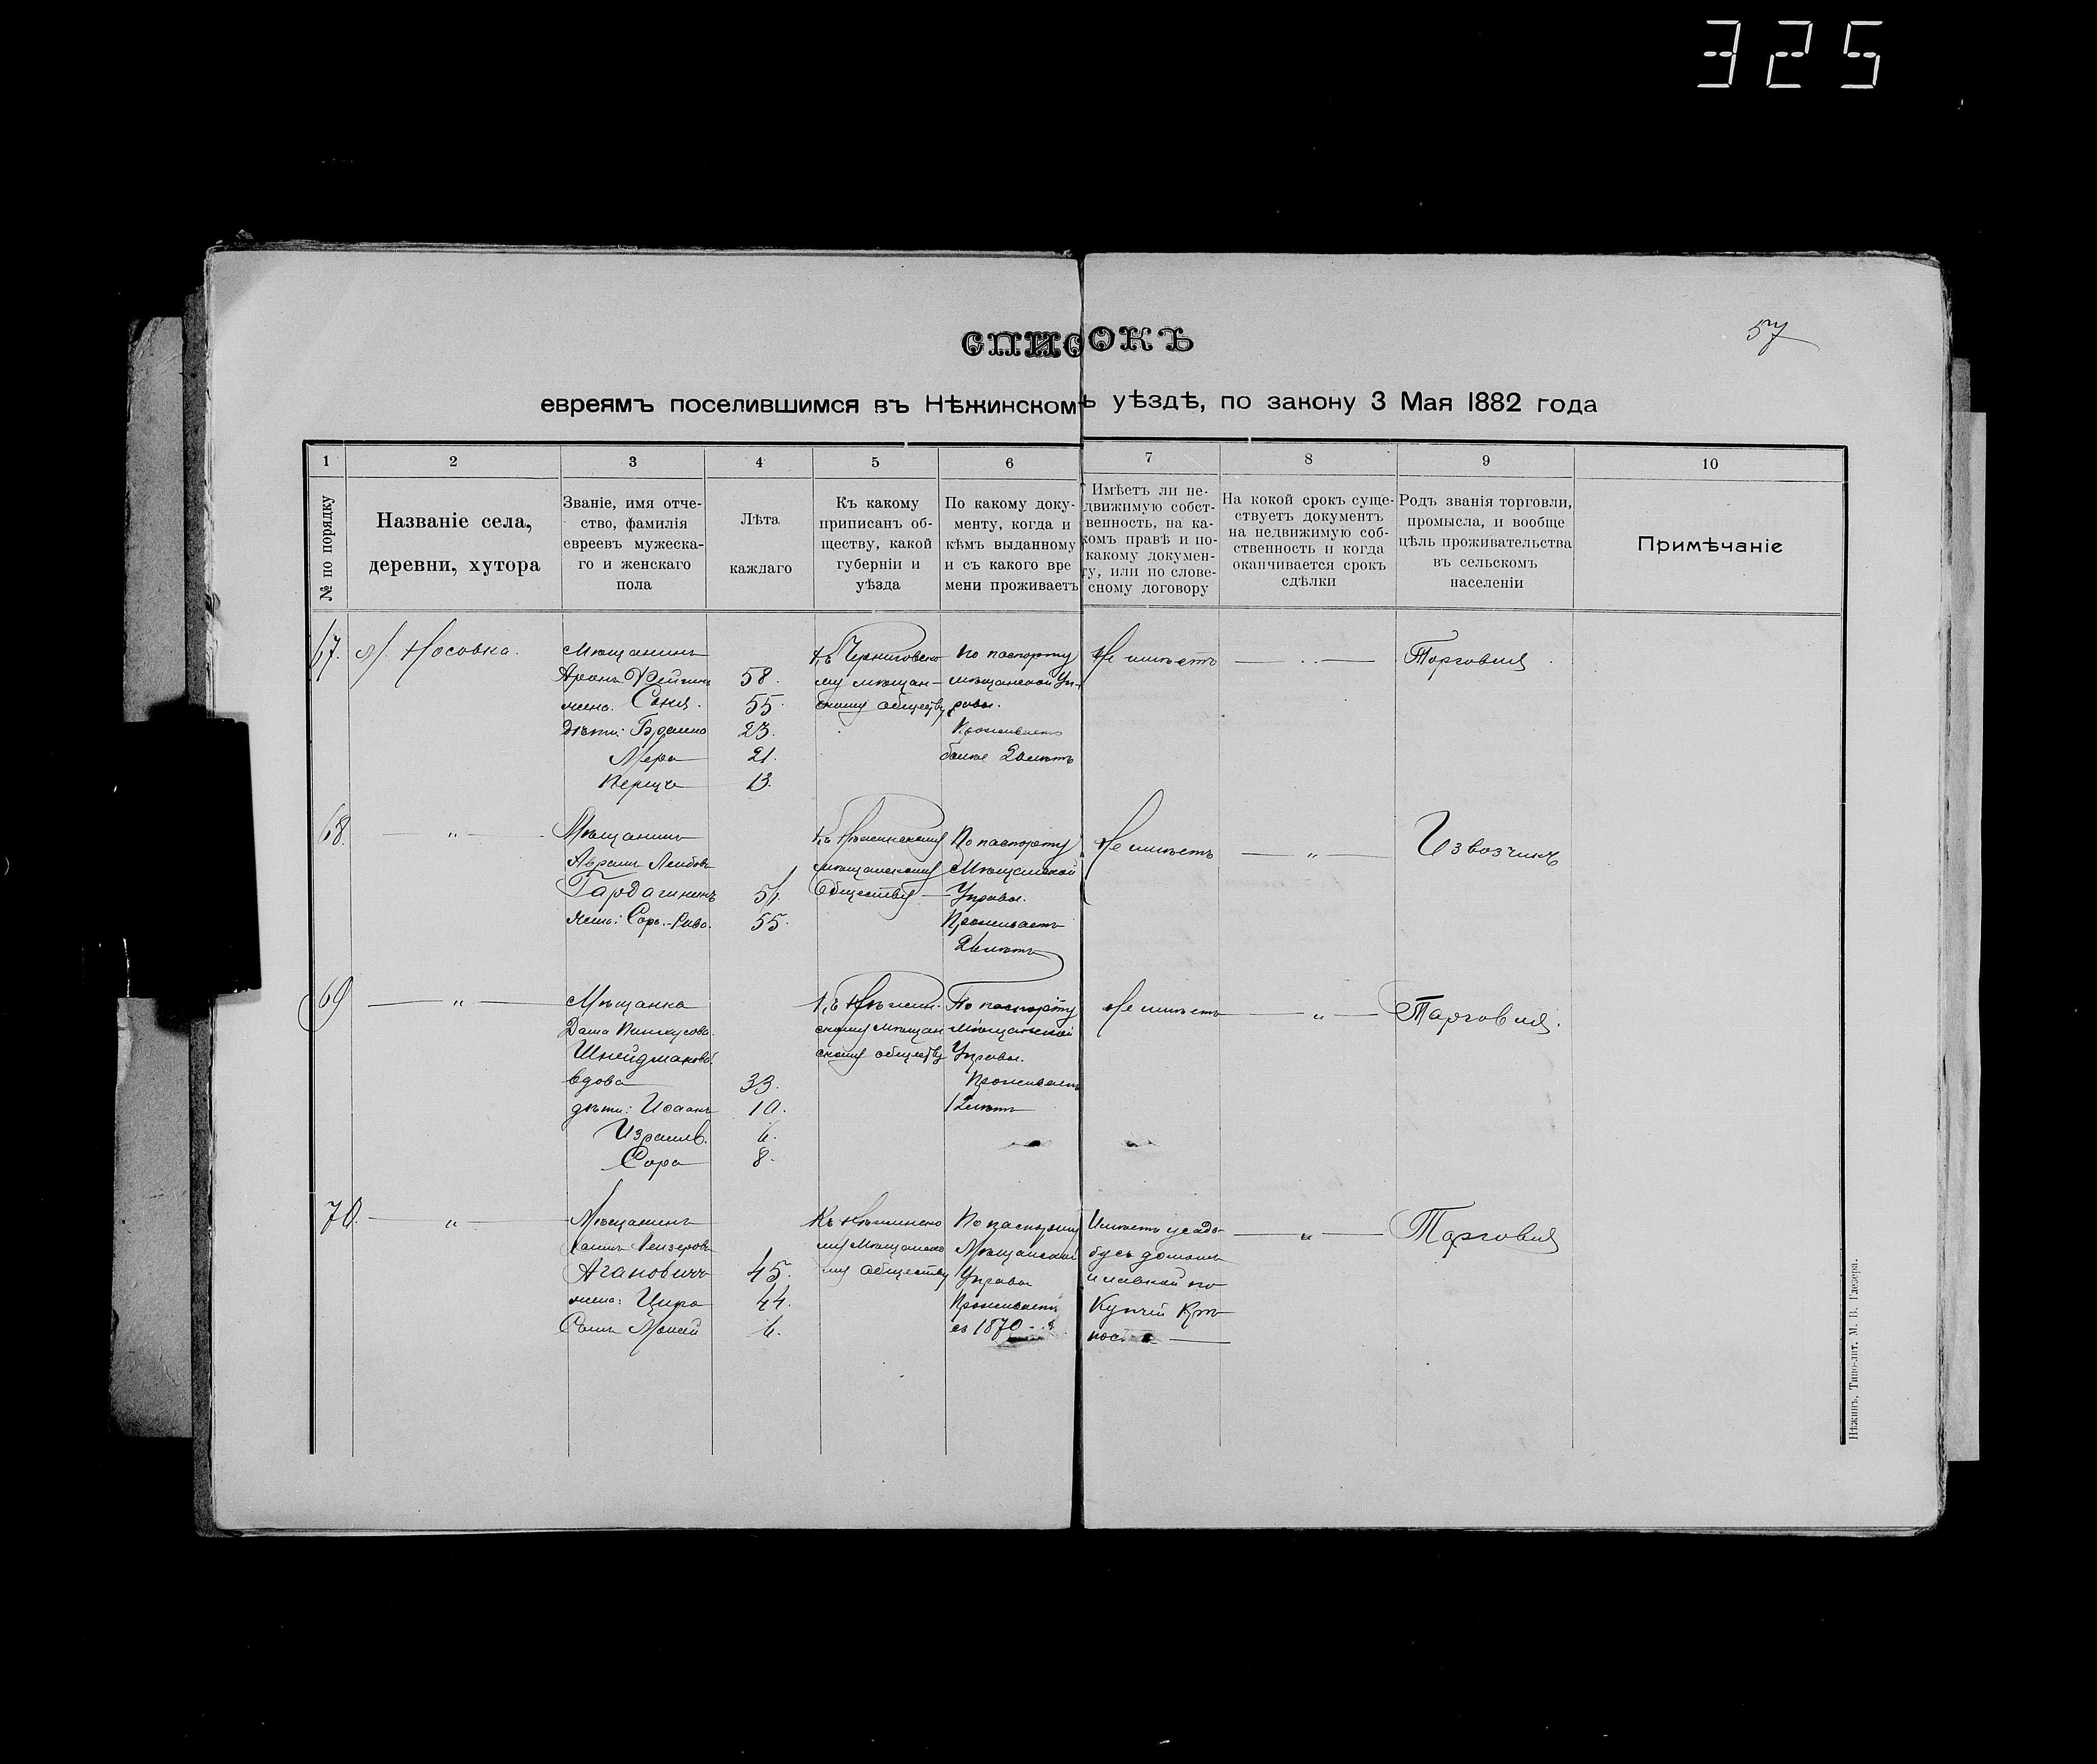 325
57
СПИСОКЪ
евреямъ поселившимся въ Нѣжинскомъ уѣздѣ, по закону 3 Мая 1882 года
1 2 3 4 5 6 7 8 9 10
№ по порядку
Названіе села,
деревни, хутора
Званіе, имя отче-
ство, фамилія
евреевъ мужеска-
го и женскаго
пола
Лѣта
каждаго
Къ какому
приписанъ об-
ществу, какой
губерніи и
уѣзда
По какому доку-
менту, когда и
кѣмъ выданному
и съ какого вре
мени проживаетъ
Имѣетъ ли не-
движимую собст-
венность, на ка-
комъ правѣ и по-
какому докумен-
ту, или по слове-
сному договору
На кокой срокъ суще-
ствуетъ документъ
на недвижимую соб-
ственность и когда
оканчивается срокъ
сдѣлки
Родъ званія торговли,
промысла, и вообще
цѣль проживательства
въ сельскомъ
населеніи
Примѣчаніе
67. М. Носовка.
Мѣщанинъ
Аронъ 58.
жена. Соня. 55.
Дѣти: 23.
Мера 21.
Перецъ 13.
Къ Черниговско
му мѣщан-
скому обществу
По паспорту
мѣщанской Уп-
равы.
Проживаетъ
болѣе лѣтъ
Не имѣетъ
Торговля
68. — „ —
Мѣщанинъ
Абрамъ Лейбовъ
51.
Жена: Сора-Рива. 55.
Къ Нѣжинскому
мѣщанскому
Обществу
По паспорту
Мѣщанской
Управы.
Проживаетъ
лѣтъ
Не имѣетъ
— „ —
Извозчикъ
69 — „ —
Мѣщанка
Даша Пинкусова
Шнейдманова
вдова 33.
дѣти: Исаакъ 10.
Израиль. 6.
Сора 8.
Къ Нѣжин.
скому Мѣщан
скому обществу
По паспорту
Мѣщанской
Управы.
Проживаетъ
12 лѣтъ
Не имѣетъ
— „ —
Торговля.
70. — „ —
Мѣщанинъ
Лейзеровъ
Агановичъ 45.
жена: Цира 44.
Сынъ 6.
Къ Нѣжинско
му Мѣщанско
му Обществу
По паспорту
Мѣщанской
Управы
Проживаетъ
съ 1870
Имѣетъ усадь
бу съ домомъ
и лавкой по
Купчей Крѣ
пос
— „ —
Торговля
Нѣжинъ, Типо-лит. М. В. Глезера.